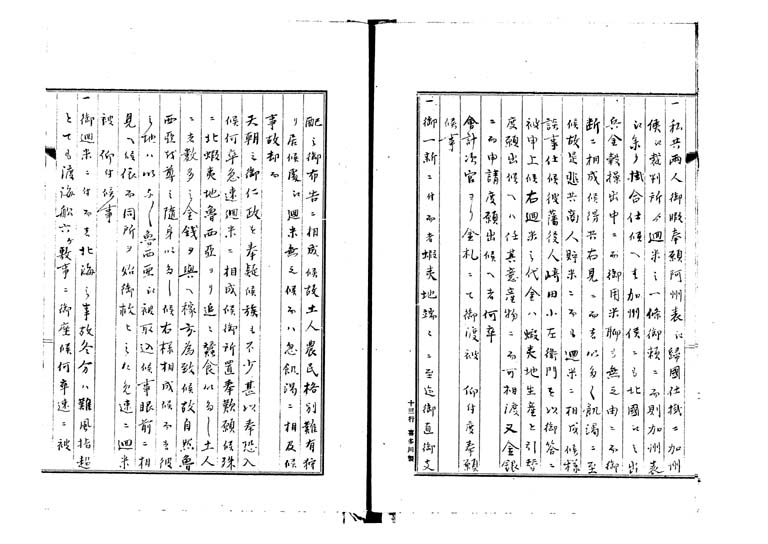 一私共両人御暇奉願阿州表ゟ帰国仕掛ニ加州
侯ゟ裁判所ゟ廻米之一條御頼ニ而則加州表
ゟ余り掛合仕候へ共加州侯ニも北國ゟ之出
兵金穀操出中ニ而御用米聊も無之由ニ而御
断ニ相成候得共右見ニ而も以多し飢渇ニ至
候故是悲共商人貯米ニ而も廻米ニ相成候様
談事仕候彼藩後人崎田小左衛門を以御答ニ
被申上候右廻米之代金ハ蝦夷地生産と引替
度願出候へハ任其意産物ニ而可相渡又金銀
ニ而申請度願出候へ者何卒
會計次官ヨリ金札ニて御渡被 仰付度奉願
候事
一御一新ニ付而者蝦夷地端々ニ至迄御直御支
配之御布告ニ相成候故土人農民格別難有狩
り居候處ゟ廻米無之候而ハ忽飢渇ニ相及候
事故却而
天朝之御仁政を奉疑候族も不少甚以奉恐入
候何卒急速廻米ニ相成候御所置奉歎願候殊
ニ北蝦夷地魯西亜ヨリ追々蠶食以多し土人
ニ者数多之金銭ヲ與へ稼方為致候故自然魯
西亜ヲ尊之随身以多し候右様相成候而者彼
之地ハ以与々魯西亜ゟ被取込候事眼前ニ相
見へ候依而同所ヲ始御救として急速ニ廻米
被 仰付候事
一御廻米ニ付而者北海之事故冬分ハ難風指起
とても渡海船六ケ敷事ニ御座候何卒速ニ被
十三行 喜多川製